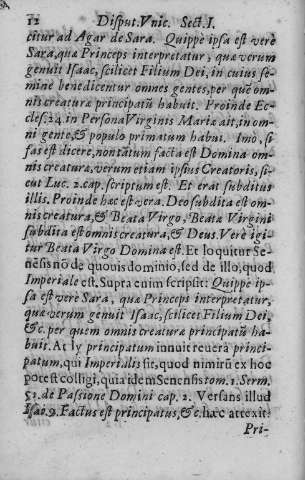 12 Disput. Vnic. Sect. I.
citur ad Agar de Sara. Quippè ipsa est verè
Sara, quæ Princeps interpretatur, quæ verum
genuit Isaac, scilicet Filium Dei, in cuius se-
mine benedicentur omnes gentes, per quẽ om-
nis creaturæ principatũ habuit. Proinde Ec-
cles. 24 in Persona Virginis Mariæ ait, in om-
ni gente, & populo primatum habui. Imò, si
fas est dicere, non tãtum facta est Domina om-
nis creaturæ, verum etiam ipsius Creatoris, si-
cut Luc. 2. cap. scriptum est. Et erat subditus
illis. Proinde hæc est vera. Deo subdita est om-
nis creatura, & Beata Virgo; Beatæ Virgini
subdita est omnis creatura, & Deus. Verè igi-
tur Beata Virgo Domina est. Et loquitur Se-
nẽsis nõ de quouis dominio, sed de illo, quod
Imperiale est. Supra enim scripsit: Quippè ip-
sa est verè Sara, quæ Princeps interpretatur,
quæ verum genuit Isaac, scilicet Filium Dei,
& c. per quem omnis creaturæ principatũ ha-
buit. At ly principatum innuit reuerà princi-
patum, qui Imperialis sit, quod nimirũ ex hoc
potest colligi, quia idem Senensis tom. 1. Serm.
51. de Passione Domini cap. 2. Versans illud
Isaiæ. 9. Factus est principatus, & c. hæc attexit:
Pri-